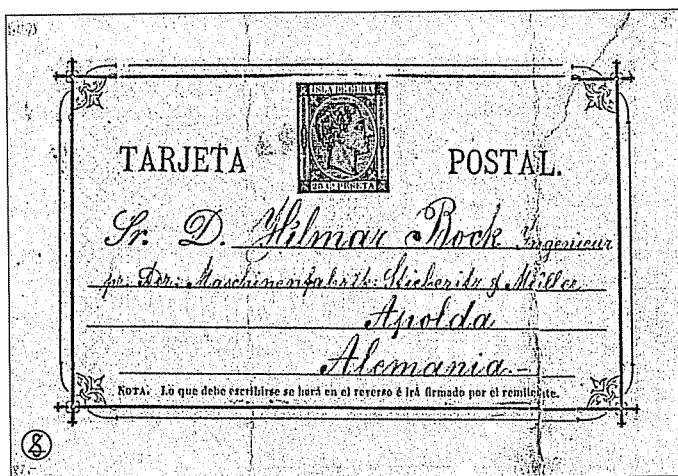 ISLA DE CUBA
TARJETA POSTAL.
25 Cs PESETA
Sr. D. Hilmar Bock Ingenieur
pr. Adr.: Maschinenfabrik: Stieberitz & Müller
Apolda
Alemania.-
NOTA. Lo que debe escribirse se hará en el reverso é irá firmado por el remitente.